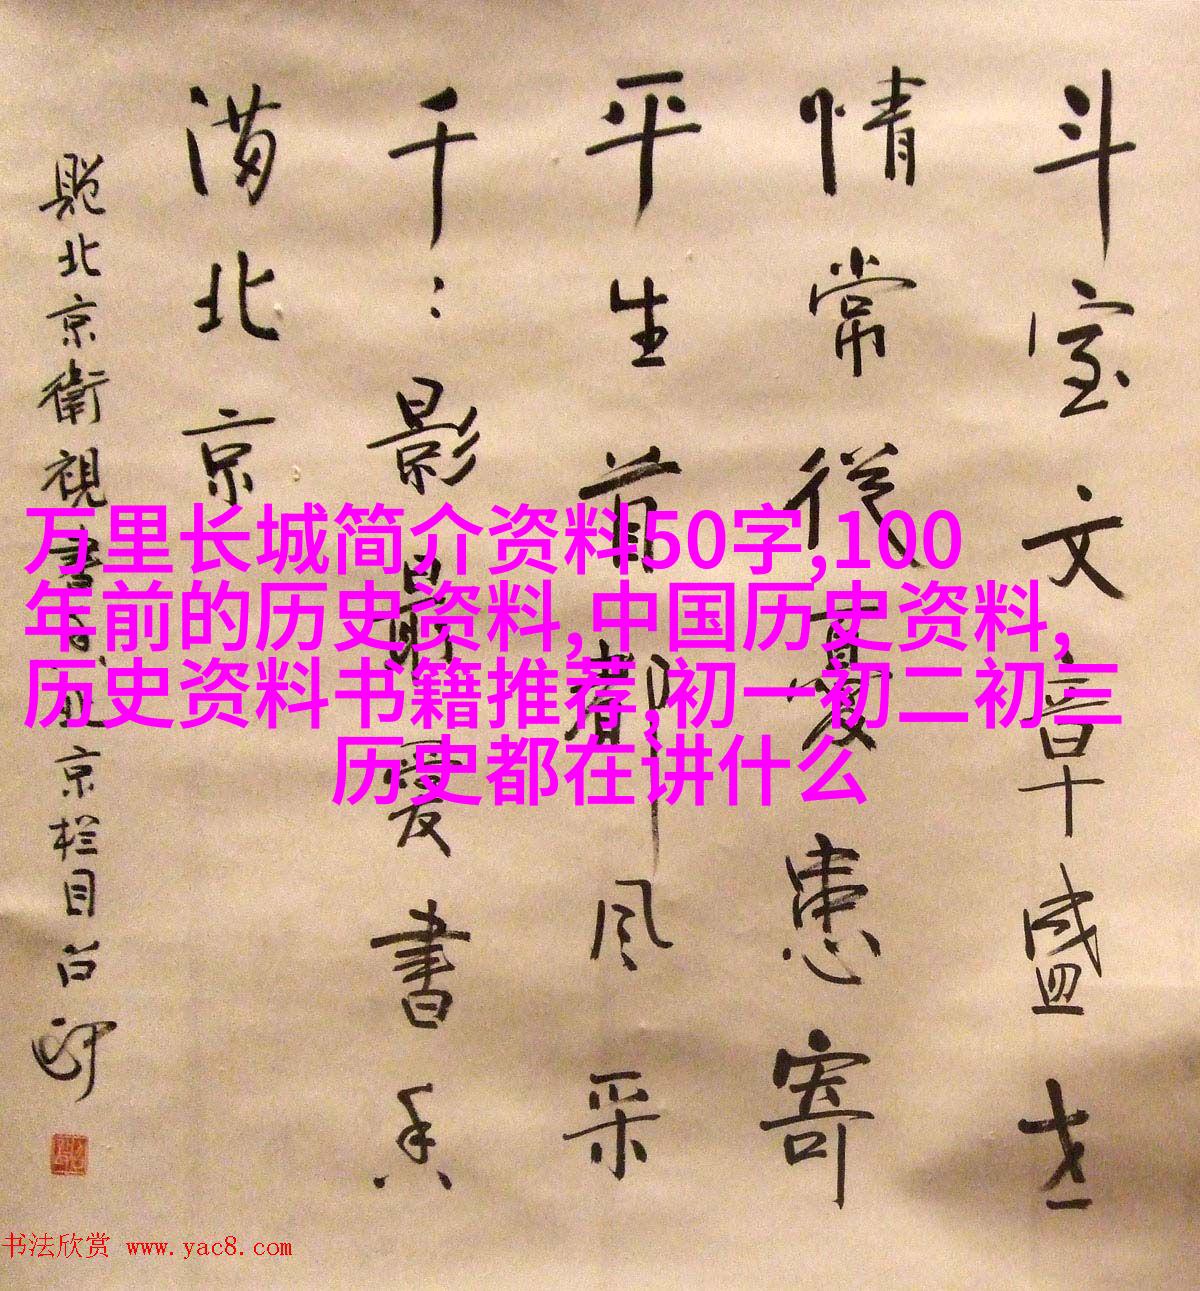 斗室文章盛世
情常從憂患寄
平生首都风采
千〻影最爱書香
满北京
题北京衛視書香北京栏目
万里长城简介资料50字,100
年前的历史资料,中国历史资料,
历史资料书籍推荐,初一初二初三
历史都在讲什么
书法欣赏 www.yac8.com